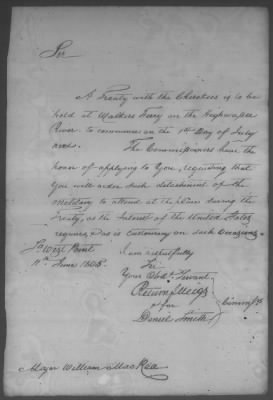 Sir
A Treaty with the Cherokees is to be
held at Walkers Ferry on the Highwassee
River. to commence on the 1st Day of July
next. The Commissioners have the
honor of applying to You, requesting that
You will order such detachment of the
military to attend at the place during the
Treaty, as the Interest of the United States
requires, and is customary on such occasions.
So West Point
11th June 1808.
I am respectfully
Sir
Your Obdt. Servant
Return J Meigs
for
Daniel Smith
Commrs
Major William MacRea